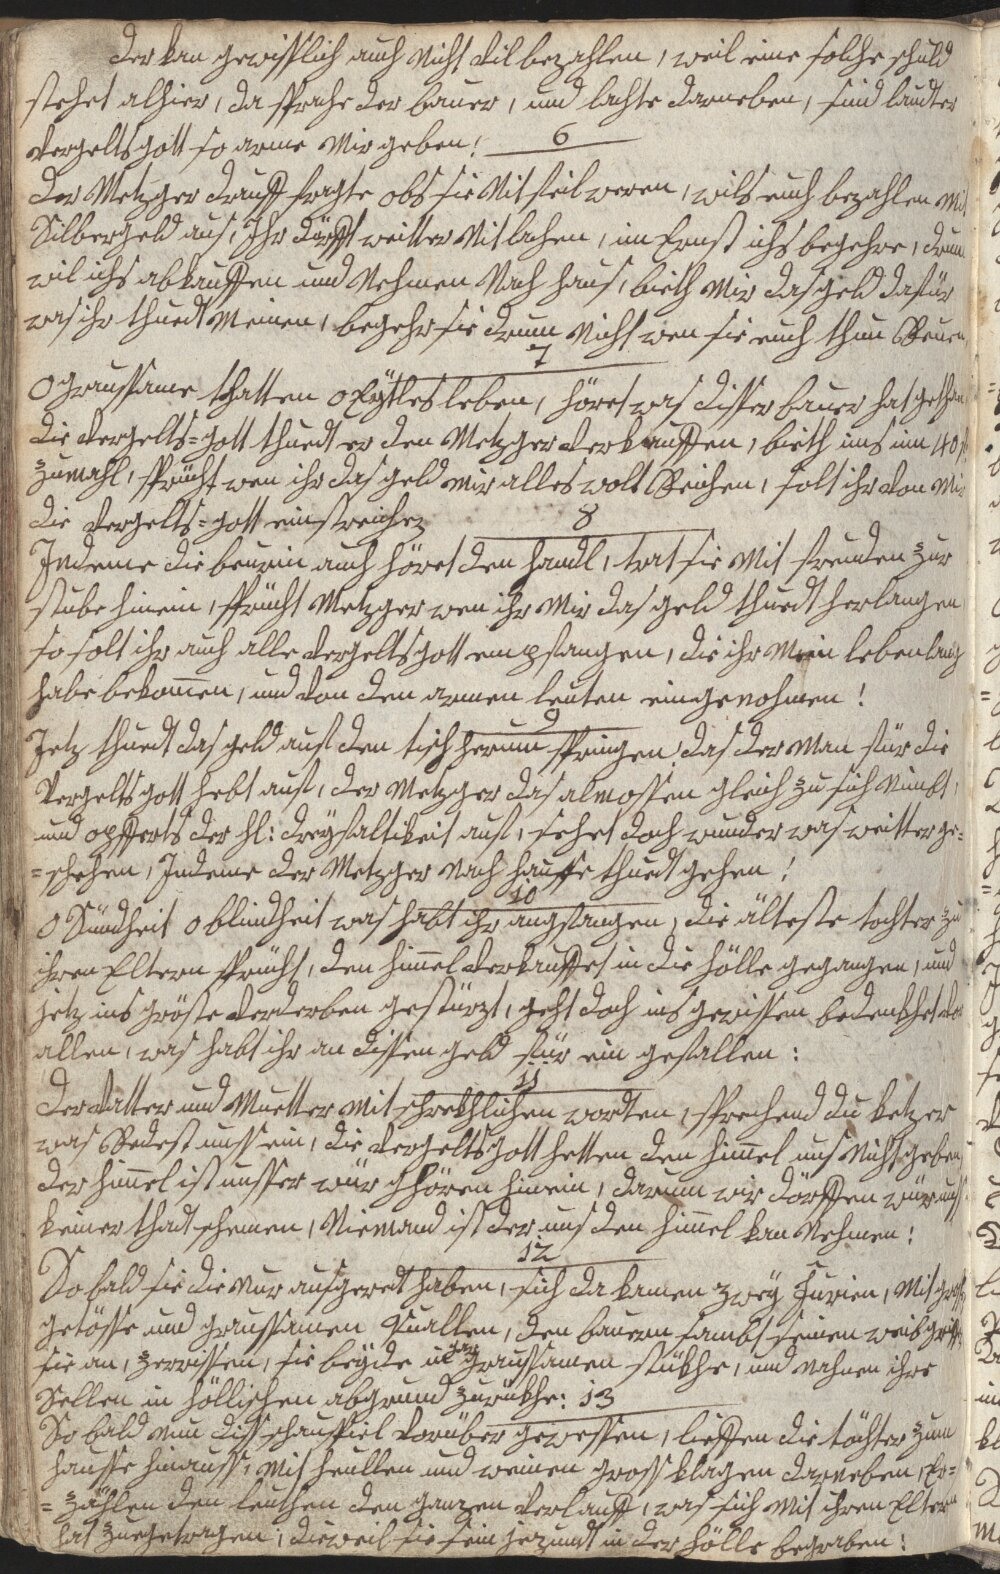 der kan gewisslich auch Nicht Vil bezahlen, weil eine solche schuld
stehet alhier, da sprache der bauer, und lachte darneben, sind lautter
Vergelts gott so arme Mir geben! 6
Der Metzger drauff fragte obs sie Nit feil weren, wils euch bezahlen Mit
Silbergeld aus, Ihr dörfft weitter Nit lachen, im Ernst ichs begehre, drum
wil ichs abkauffen und Nehmen Nach haus, bieth Mir das geld dafür
was ihr thuedt Meinen, begehr sie drum Nicht wen sie euch thun Reuen,
7
O graussame thatten o Eÿtles leben, höret was disser bauer hat gethan
die Vergelts=gott thuedt er den Metzger Verkauffen, bieth ins um 40 f
zumahl, sprücht wen ihr das geld mir alles wolt Reichen, solt ihr Von Mir
die Vergelts=gott einstreichen 8
Indeme die beurin auch höret den handl, trat sie Mit freuden zur
stube hinein, sprücht Metzger wen ihr Mir das geld thuedt herlangen
so solt ihr auch alle Vergelts gott empfangen, die ihr Mein lebenlang
habe bekomen, und Von den armen leuten eingenohmen!
9
Jetz thuedt das geld auf den tisch herum springen, das der Man für die
Vergelts gott hebt auf, der Metzger das almossen gleich zu sich Nimbt,
und opfferts der hl: dreÿfaltikeit auf, sehet doch wunder was weitter ge=
=schehen, Indeme der Metzger Nach hausse thuedt gehen!
10
O Sündheit o blindheit was habt ihr angfangen, die älteste tochter zu
ihren Eltern sprücht, den himel Verkauffet in die hölle gegangen, und
jetz ins gröste Verderben gestürzt, geht doch ins gewissen bedenkhet Vor
allen, was habt ihr an dissen geld für ein gefallen:
11
Der Vatter und Muetter Mit schrekhlichen wordten, sprechend du ketzer
was Redest unss ein, die Vergelts gott hetten den himel uns Nicht geben,
der himel ist unsser wür ghören hinein, darum wir dörffen wür unss
keiner thadt schemen, Niemand ist der uns den himel kan Nehmen!
12
So bald sie die Nur ausgeredt haben, sich da kamen zweÿ Furien, Mit gross
getösse und graussamen Knallen, den bauern sambt seinen weib griff
sie an, zerrissen, sie beÿde in graussamen stükhe, und Nahmen ihre
Sellen in höllischen abgrund zurükhe: 13
So bald Nun diss schauspiel Vorüber gewessen, lieffen die töchter zum
hausse hinauss, Mit heullen und weinen gross klagen darneben, Er=
=zählen den leuthen den ganzen Verlauff, was sich Mit ihren Eltern
hat zuegetragen, dieweil sie sein jezundt in der hölle begraben!